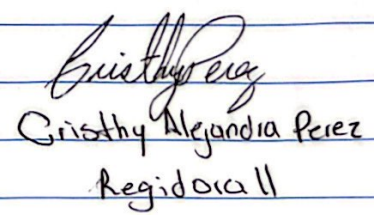 Cristhy Perez
Cristhy Alejandra Perez
Regidora II